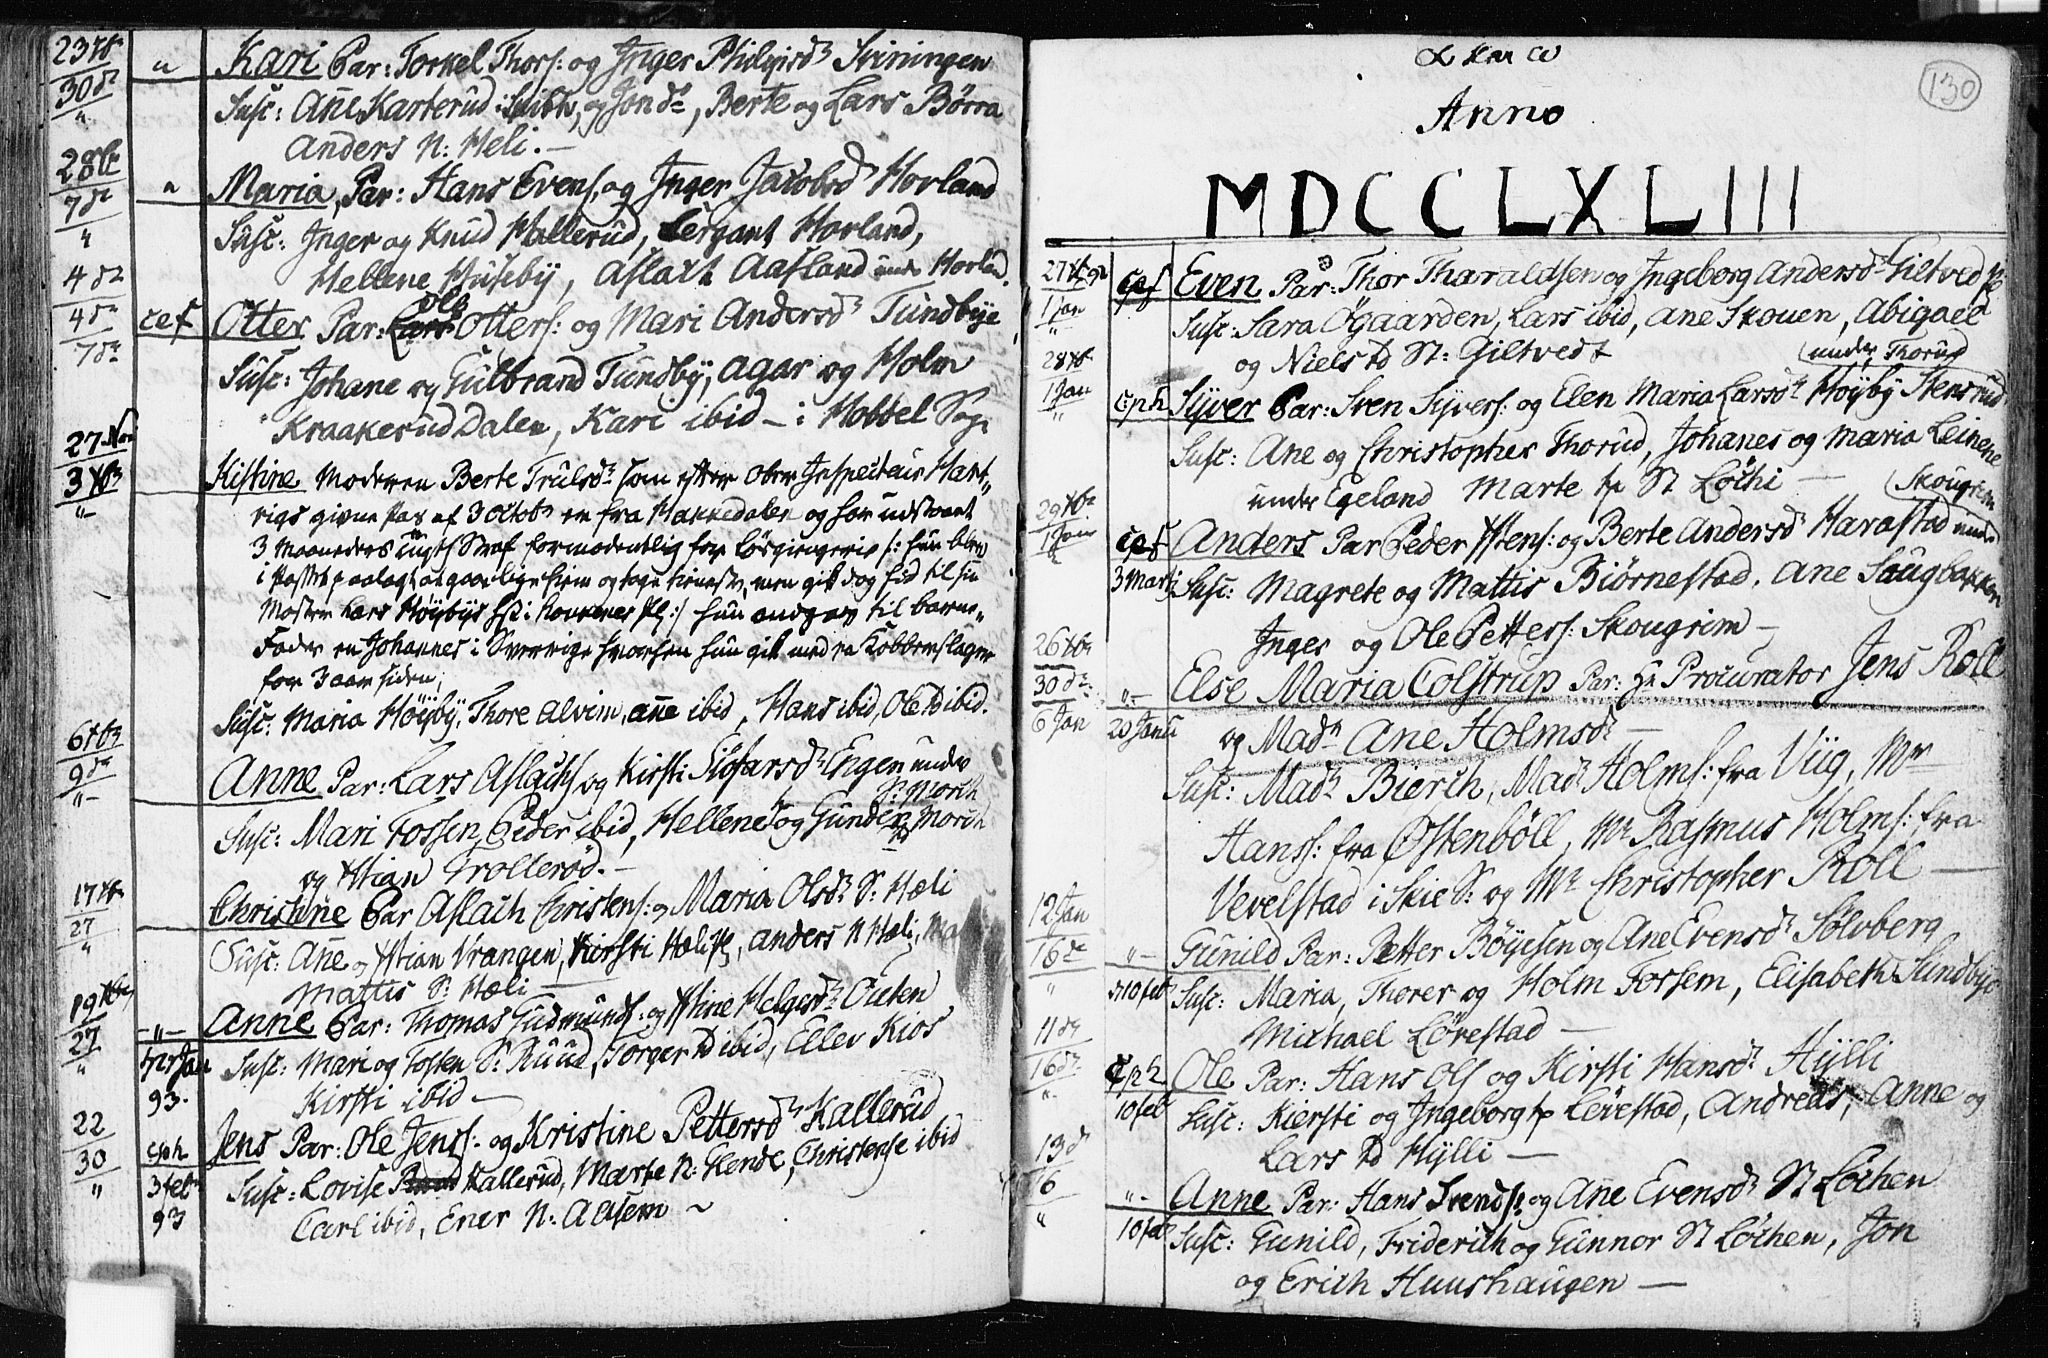 23 Xbr
30 dº
"
" Kari Par: Torkel Thors: og Inger Svinningen
Susc: Añe Karterud og Jon dº, Berte og Lars Børra
Anders N: Heli. —
28
7 dº
"
" Maria, Par: Hans Evens: og Inger Jacobsdr Horland
Susc: Inger og Knud Hallerud, Sergant Horland,
Hellene Huseby, Aslach Aasland unde Horland
4 dº
4 dº
7 dº
cef Otter Par: Ole Otters: og Mari Andersdr Tundbye
Susc: Johane og Gulbrand Tundby, Agar og Holm
Kraakerud Dalen, Kari ibid — i Hobbel Sog:
27 Nov
3 Xbr
"—
Kistine Moderen Berte Trulsdr som efter Ober Inspecteur Hart„
rigs givne Pas af 3 Octobr er fra Hakkedalen og har udstaaet
3 Maaneders Tugts Straf formodentlig for Løsgiengerie /: hun blev
i Passet paalagt at gaae lige hiem og tage tieneste, men gik dog hid til sin
Moster Lars Høÿbÿs :/ hun angav til barne„
Fader en Johannes i Sverrige hvorhen hun gik med en Kobberslager
for 3 aar siden;
Susc: Maria Høÿbÿ, Thore Alvim, añe ibid, Hans ibid, Ole ibid.
6 Xbr
9 dº
"—
Anne Par: Lars Aslachs og Kirsti Engen under
S: Morch
Susc: Mari Fossen, Peder ibid, Hellene og Gunder Morch
og Xstian Trollerød. —
17 Xbr
27
"
Christine Par Aslach Christens: og Maria Olsdr S: Hæli
Susc: Añe og Xstian Vrangen, Kirsti Hæli, Anders N Hæli,
Mattis S: Hæli —
19 Xbr
27
"
—"— Anne Par: Thomas Gudmunds: og Xstine Helgesdr Outen
Jan Susc: Mari og Tosten S: Ruud, Torger ibid, Ellev Kios
93. Kirsti ibid —
22
30
"
cph Jens Par: Ole Jens: og Kristine Pettersdr Kallerud
3 feb Susc: Lovise Kallerud, Marte N: Glende, Christense ibid
93 Carl ibid, Ener N: Aasem ~
130
Anno
MDCCLXLIII
27 Xbr 92
1 Jan
"
cef Even Par: Thor Tharaldsen og Ingeborg Andersdr Giltved
Susc: Sara Øgaarden, Lars ibid, Ane Skouen, Abigael
og Niels St: Giltvedt
28 Xbr
1 Jan
"
(under Thorud
cph Syver Par: Sven Syvers: og Elen Maria Larsdr Høÿbÿ Stensrud
Susc: Ane og Christopher Thorud, Johanes og Maria Leinene
under Egeland Marte St Løchi —
29 Xbr
1 Jan
(Skougrim
cef Anders Par Peder Xstens: og Berte Andersdr Harastad unde
3 Marti Susc: Magrete og Mattis Biørnestad, Ane Saugbakken
Inger og Ole Petters: Skougrim —
26 Xbr
30 dº
6 Jan
"— Else Maria Colstrup Par: Hr Procurator Jens Roll
20 Janu og Mad: Ane Holmsdr —
Susc: Madm Bierch, Madm Holms: fra Viig, Mr
Hans: fra Østenbøll, Mr Rasmus Holms: fra
Vevelstad i Skie S: og Mr Christopher Roll —
12 Jan
16 dº
"
"— Gunild Par: Petter Bøÿesen og Ane Evensdr Sølvberg
10 feb Susc: Maria, Thorer og Holm Forsem, Elisabeth Sundbye
Michael Lørestad —
11 dº
16 dº
"—
cph Ole Par: Hans Ols og Kirsti Hansdr Hÿlli
10 feb Susc: Kiersti og Ingeborg Løvestad, Andreas, Anne og
Lars Hÿlli —
13 dº
16
"
"— Anne Par: Hans Svends: og Añe Evensdr St Løchen
10 feb Susc: Gunild, Friderich og Gunnor St Løchen, Jon
og Erich Huushaugen —